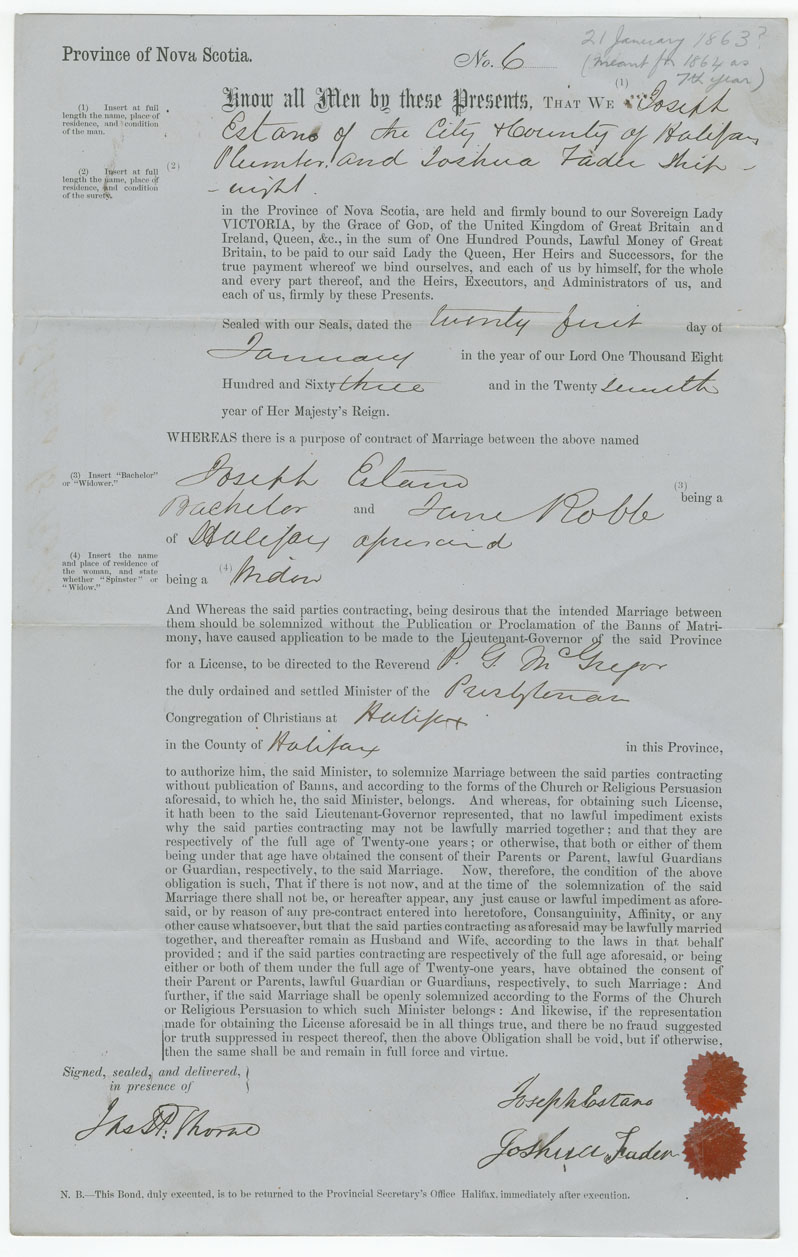 Province of Nova Scotia.
No. 6
21 January 1863?
(meant for 1864 as
7th year)
Know all Men by these Presents, THAT WE (1) Joseph
Estano of the City & County of Halifax
(2) Plumber, and Joshua Fader Ship-
-wright.
(1) Insert at full
length the name, place of
residence, and condition
of the man.
(2) Insert at full
length the name, place of
residence, and condition
of the surety.
in the Province of Nova Scotia, are held and firmly bound to our Sovereign Lady
VICTORIA, by the Grace of GOD, of the United Kingdom of Great Britain and
Ireland, Queen, &c., in the sum of One Hundred Pounds, Lawful Money of Great
Britain, to be paid to our said Lady the Queen, Her Heirs and Successors, for the
true payment whereof we bind ourselves, and each of us by himself, for the whole
and every part thereof, and the Heirs, Executors, and Administrators of us, and
each of us, firmly by these Presents.
Sealed with our Seals, dated the twenty first day of
January in the year of our Lord One Thousand Eight
Hundred and Sixty three and in the Twenty seventh
year of Her Majesty's Reign.
WHEREAS there is a purpose of contract of Marriage between the above named
(3) Insert "Bachelor"
or "Widower."
Joseph Estano (3) being a
Bachelor and Jane Robb
of Halifax aforesaid
(4) Insert the name
and place of residence of
the woman, and state
whether "Spinster" or
"Widow."
being a (4) Widow
And Whereas the said parties contracting, being desirous that the intended Marriage between
them should be solemnized without the Publication or Proclamation of the Banns of Matri-
mony, have caused application to be made to the Lieutenant-Governor of the said Province
for a License, to be directed to the Reverend P. G. McGregor
the duly ordained and settled Minister of the Presbyterian
Congregation of Christians at Halifax
in the County of Halifax in this Province,
to authorize him, the said Minister, to solemnize Marriage between the said parties contracting
without publication of Banns, and according to the forms of the Church or Religious Persuasion
aforesaid, to which he, the said Minister, belongs. And whereas, for obtaining such License,
it hath been to the said Lieutenant-Governor represented, that no lawful impediment exists
why the said parties contracting may not be lawfully married together; and that they are
respectively of the full age of Twenty-one years; or otherwise, that both or either of them
being under that age have obtained the consent of their Parents or Parent, lawful Guardians
or Guardian, respectively, to the said Marriage. Now, therefore, the condition of the above
obligation is such, That if there is not now, and at the time of the solemnization of the said
Marriage there shall not be, or hereafter appear, any just cause or lawful impediment as afore-
said, or by reason of any pre-contract entered into heretofore, Consanguinity, Affinity, or any
other cause whatsoever, but that the said parties contracting as aforesaid may be lawfully married
together, and thereafter remain as Husband and Wife, according to the laws in that behalf
provided; and if the said parties contracting are respectively of the full age aforesaid, or being
either or both of them under the full age of Twenty-one years, have obtained the consent of
their Parent or Parents, lawful Guardian or Guardians, respectively, to such Marriage: And
further, if the said Marriage shall be openly solemnized according to the Forms of the Church
or Religious Persuasion to which such Minister belongs: And likewise, if the representation
made for obtaining the License aforesaid be in all things true, and there be no fraud suggested
or truth suppressed in respect thereof, then the above Obligation shall be void, but if otherwise,
then the same shall be and remain in full force and virtue.
Signed, sealed, and delivered,
in presence of
Joseph Estano
Jas P. Thorne
Joshua Fader
N. B.—This Bond, duly executed, is to be returned to the Provincial Secretary's Office Halifax, immediately after execution.